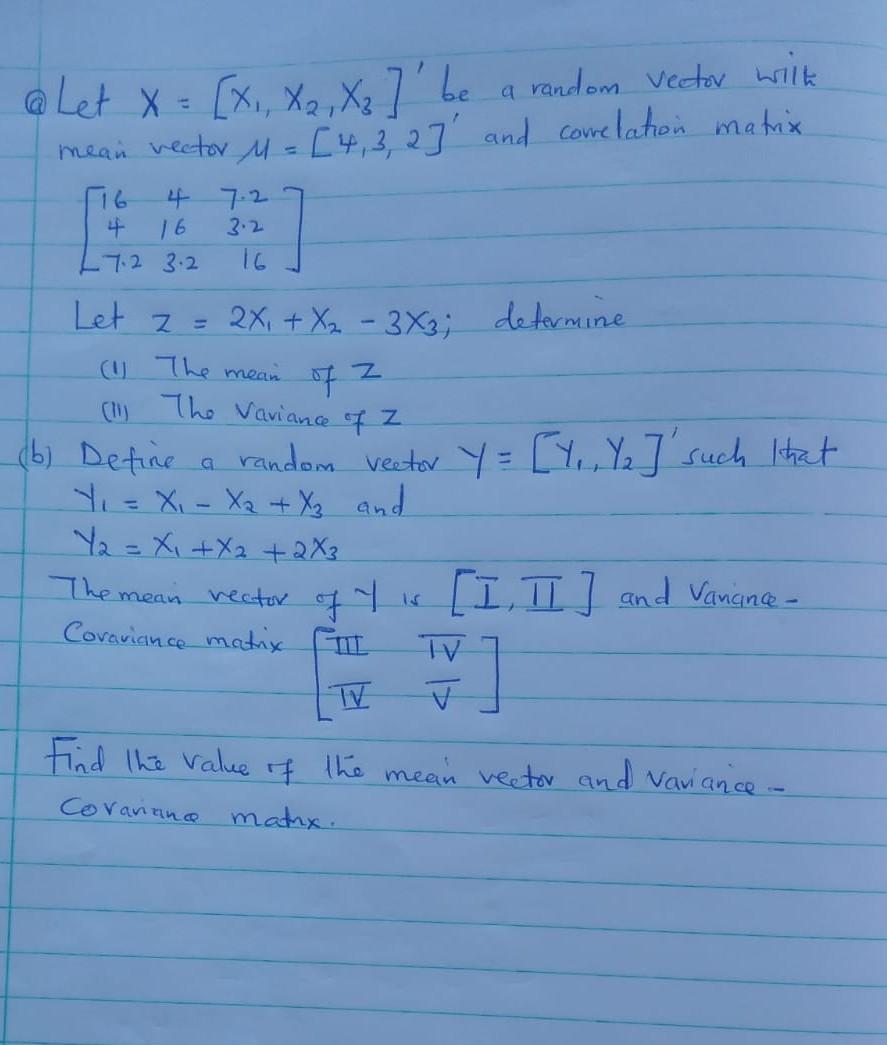 (a) Let X = [X₁, X₂, X₃]' be a random vector with
mean vector M = [4, 3, 2]' and correlation matrix
[16 4 7.2
4 16 3.2
7.2 3.2 16]
Let z = 2X₁ + X₂ - 3X₃; determine
(I) The mean of Z
(II) The Variance of Z
(b) Define a random vector Y = [Y₁, Y₂]' such that
Y₁ = X₁ - X₂ + X₃ and
Y₂ = X₁ + X₂ + 2X₃
The mean vector of Y is [I, II] and Variance-
Covariance matrix [III IV
IV V]
Find the value of the mean vector and variance-
Covariance matrix.